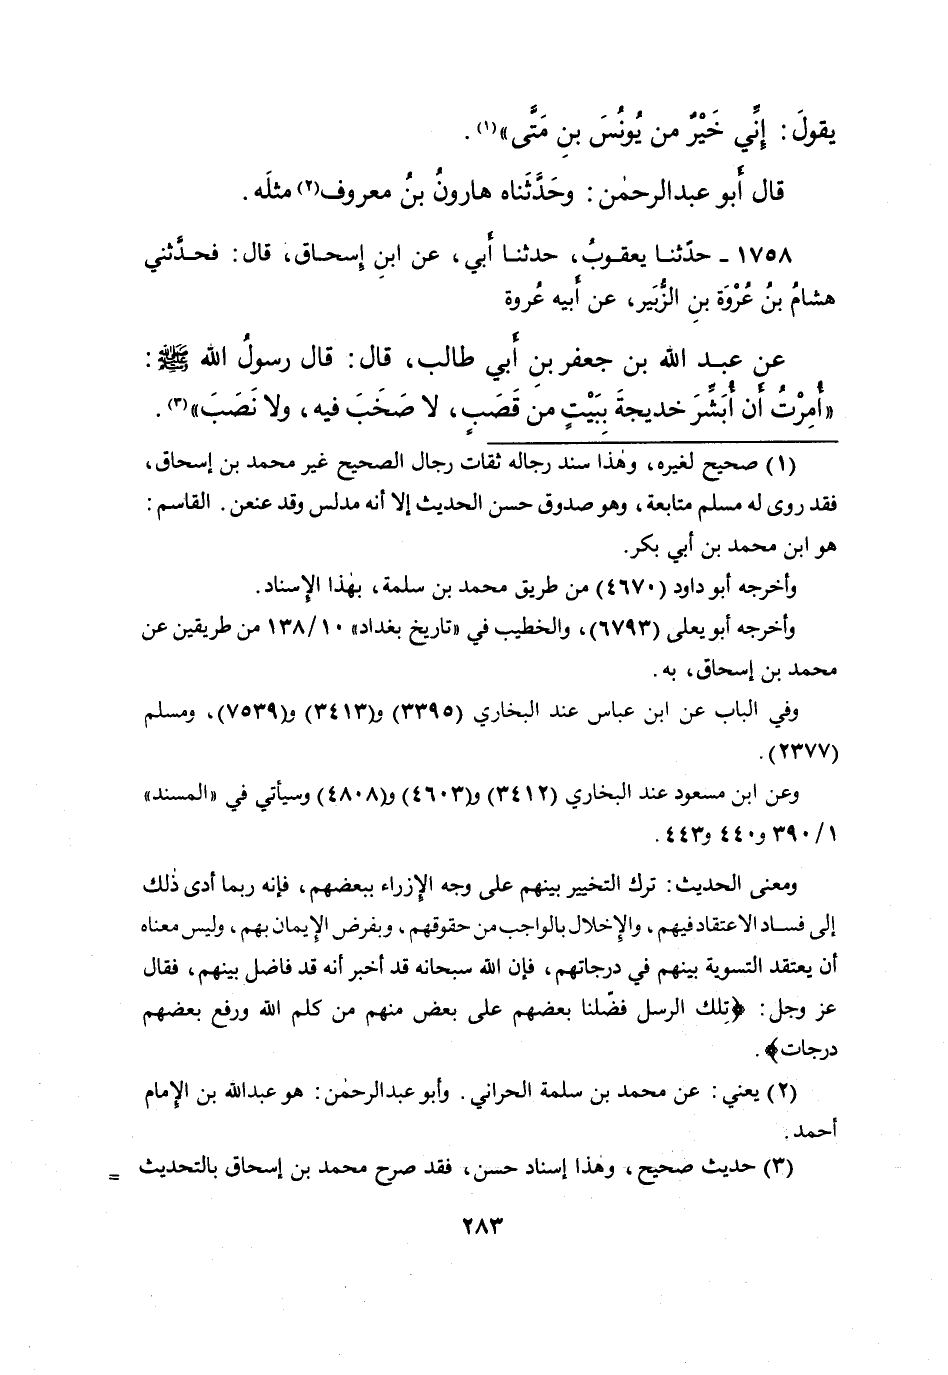 يقولَ: إِنِّي خَيْرٌ من يُونُسَ بنِ مَتَّى»(١).
قال أَبو عبدالرحمٰن: وحَدَّثَناه هارونُ بنُ معروف(٢) مثلَه.
١٧٥٨ ـ حدّثنا يعقوبُ، حدثنا أَبي، عن ابنِ إِسحاق، قال: فحدَّثني
هشامُ بنُ عُرْوَة بنِ الزُّبَير، عن أَبيه عُروة
عن عبد الله بن جعفر بنِ أَبي طالب، قال: قال رسولُ الله ﷺ:
«أُمِرْتُ أَن أُبَشِّرَ خديجةَ بِبَيْتٍ من قَصَبٍ، لا صَخَبَ فيه، ولا نَصَبَ»(٣).
(١) صحيح لغيره، وهٰذا سند رجاله ثقات رجال الصحيح غير محمد بن إسحاق،
فقد روى له مسلم متابعة، وهو صدوق حسن الحديث إلا أنه مدلس وقد عنعن. القاسم:
هو ابن محمد بن أبي بكر.
وأخرجه أبو داود (٤٦٧٠) من طريق محمد بن سلمة، بهٰذا الإسناد.
وأخرجه أبو يعلى (٦٧٩٣)، والخطيب في «تاريخ بغداد» ١٣٨/١٠ من طريقين عن
محمد بن إسحاق، به.
وفي الباب عن ابن عباس عند البخاري (٣٣٩٥) و(٣٤١٣) و(٧٥٣٩)، ومسلم
(٢٣٧٧).
وعن ابن مسعود عند البخاري (٣٤١٢) و(٤٦٠٣) و(٤٨٠٨) وسيأتي في «المسند»
٣٩٠/١ و٤٤٠ و٤٤٣.
ومعنى الحديث: ترك التخيير بينهم على وجه الإزراء ببعضهم، فإنه ربما أدى ذٰلك
إلى فساد الاعتقاد فيهم، والإخلال بالواجب من حقوقهم، وبفرض الإيمان بهم، وليس معناه
أن يعتقد التسوية بينهم في درجاتهم، فإن الله سبحانه قد أخبر أنه قد فاضل بينهم، فقال
عز وجل: ﴿تِلك الرسل فضّلنا بعضهم على بعض منهم من كلم الله ورفع بعضهم
درجات﴾.
(٢) يعني: عن محمد بن سلمة الحراني. وأبو عبدالرحمٰن: هو عبدالله بن الإمام
أحمد.
(٣) حديث صحيح، وهٰذا إسناد حسن، فقد صرح محمد بن إسحاق بالتحديث =
٢٨٣